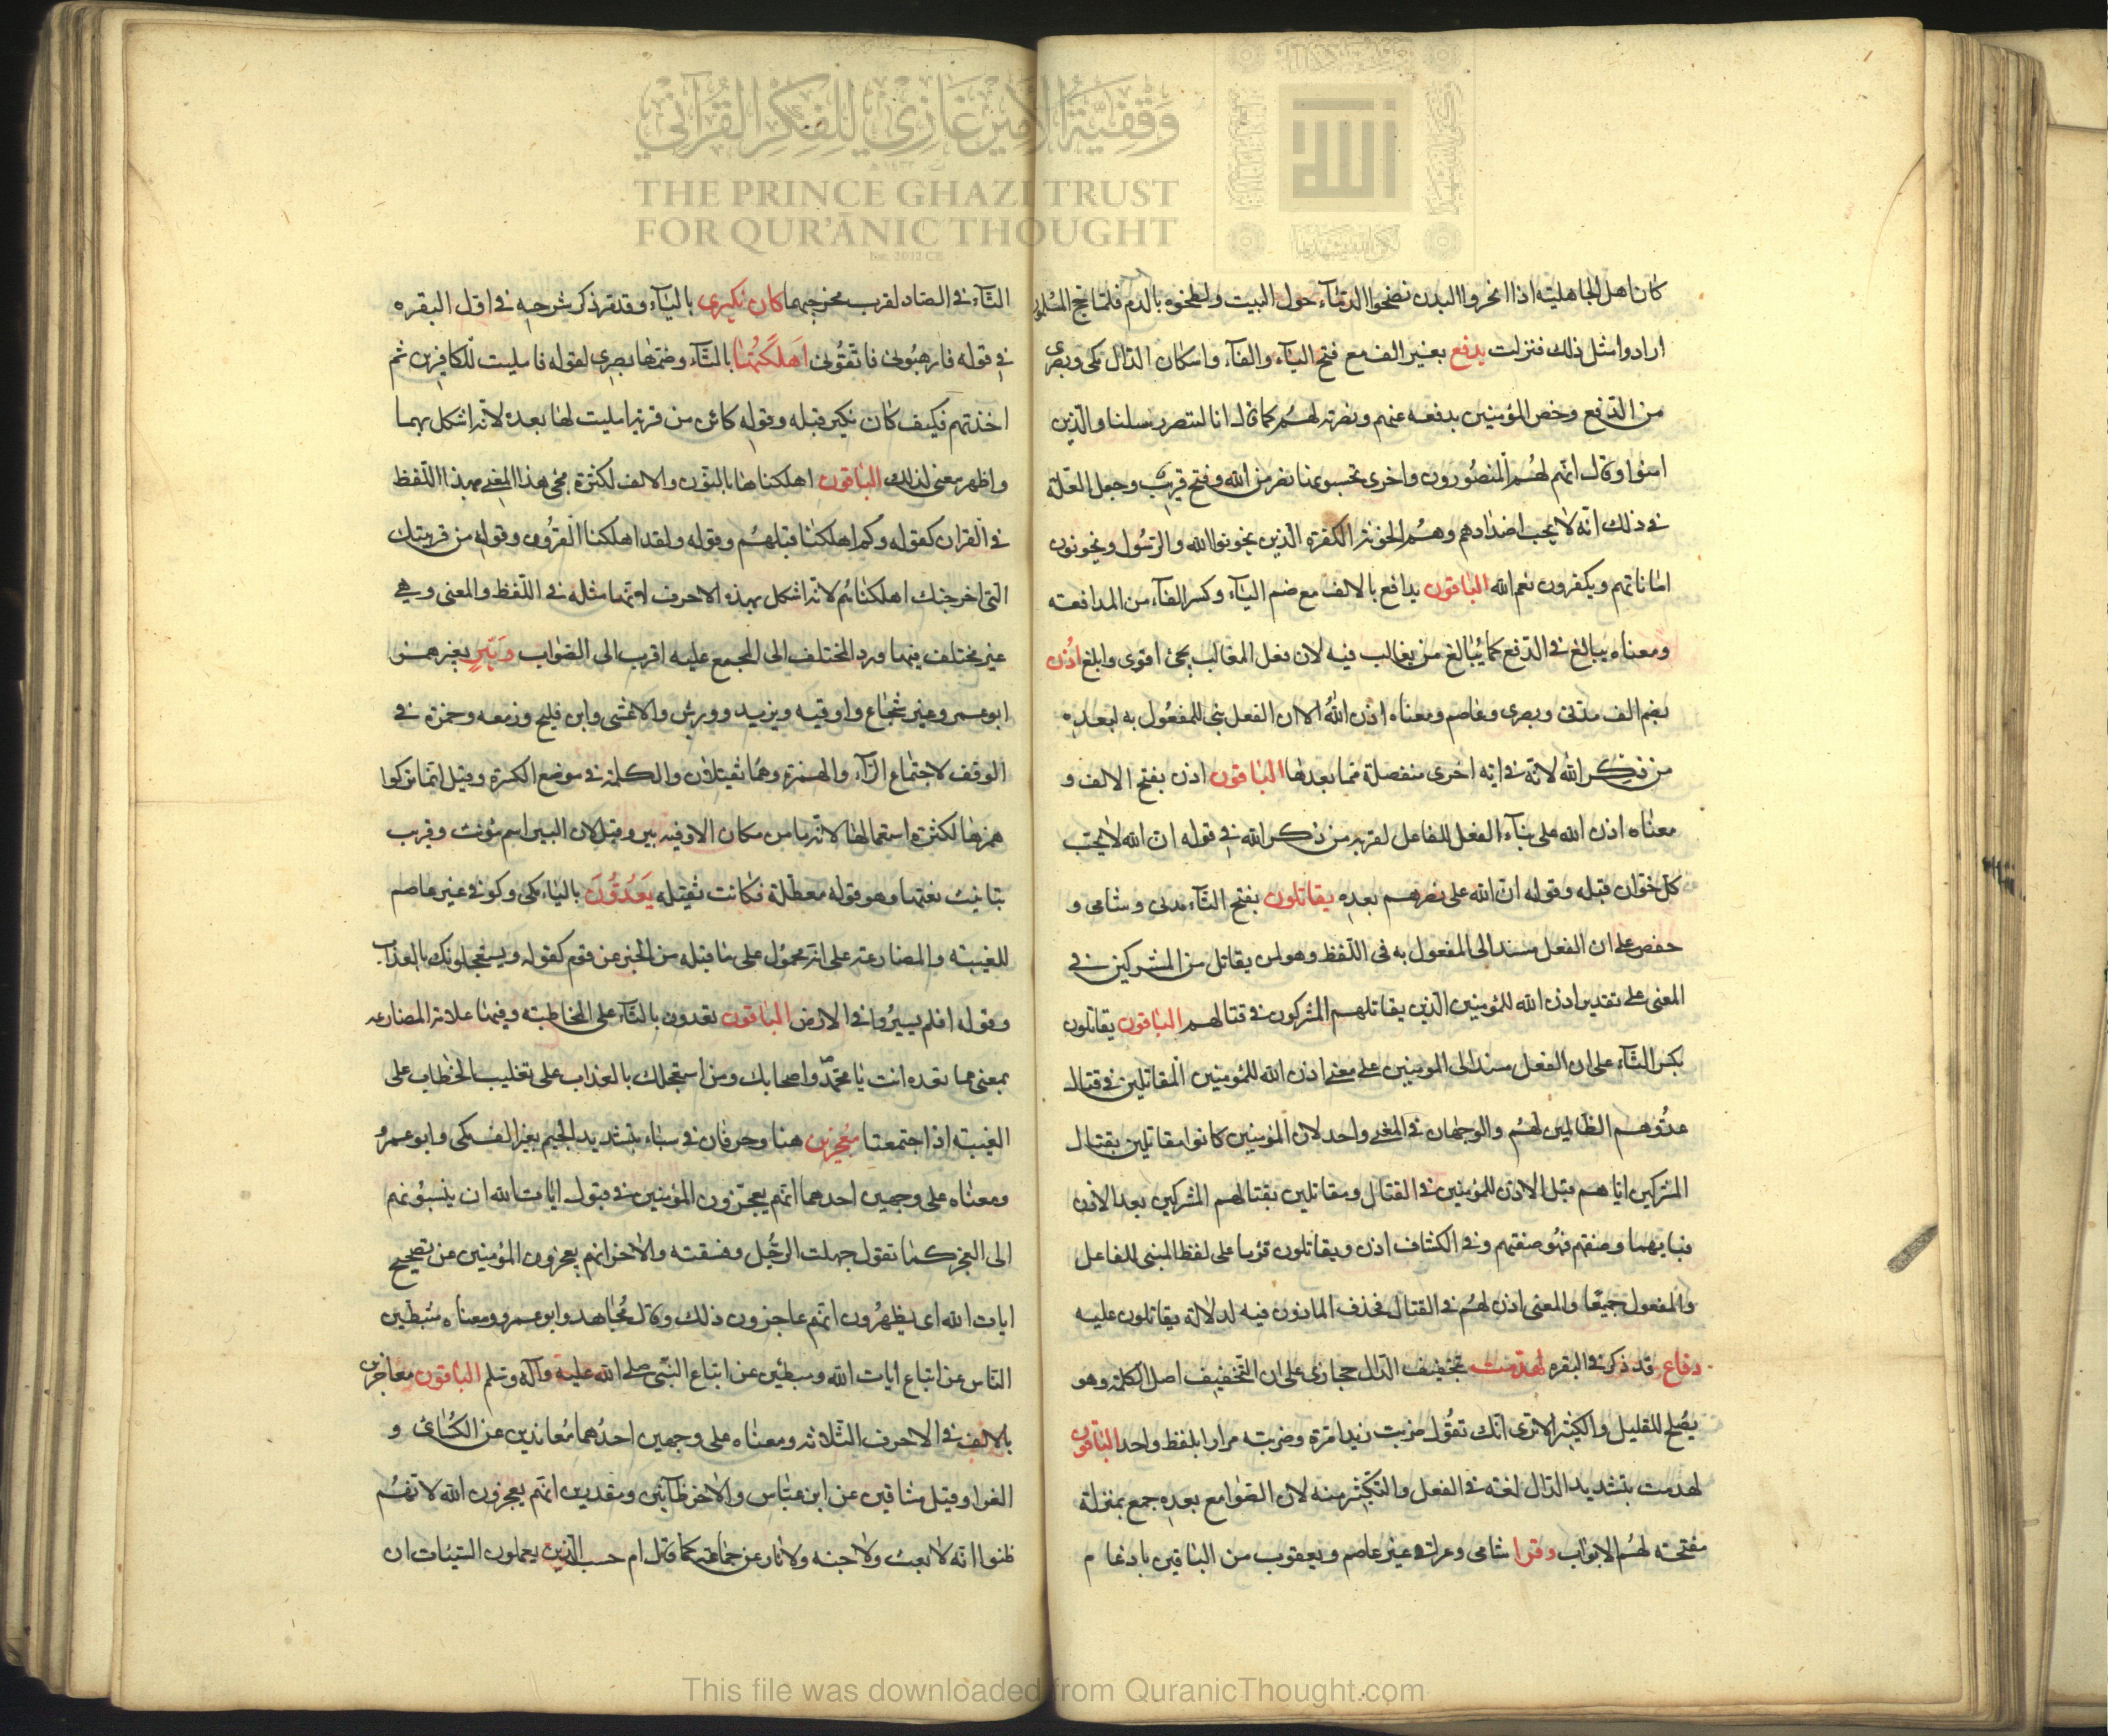 كان اهل الجاهلية اذا انحروا البدن نضحوا الدماء حول البيت ولطخوه بالدم فلما حج المسلمون
ارادوا مثل ذلك فنزلت يدفع بغير الف مع فتح الياء والفاء واسكان الدال مكى وبصرى
من الدفع وخص المؤمنين بدفعه عنهم ونصرته لهم كما قال انا لننصر رسلنا والذين
امنوا وقال انهم لهم المنصورون واخرى تحبونها نصر من الله وفتح قريب وجعل العلة
فى ذلك انه لا يحب اضدادهم وهم الخونة الكفرة الذين يخونوا الله والرسول ويخونون
اماناتهم ويكفرون نعم الله الباقون يدافع بالالف مع ضم الياء وكسر الفاء من المدافعة
ومعناه يبالغ فى الدفع كما يبالغ من يغالب فيه لان فعل المغالب يجئ اقوى وابلغ اذن
بضم الف مدنى وبصرى وعاصم ومعناه اذن الله الا ان الفعل بنى للمفعول به لبعده
من ذكر الله لانه فى اية اخرى منفصلة مما بعدها الباقون اذن بفتح الالف و
معناه اذن الله على بناء الفعل للفاعل لقربه من ذكر الله فى قوله ان الله لا يحب
كل خوان قبله وقوله ان الله على نصرهم بعده يقاتلون بفتح التاء مدنى وشامى و
حفص على ان الفعل مسند الى المفعول به فى اللفظ وهو لمن يقاتل من المشركين فى
المعنى على تقدير اذن الله للمؤمنين الذين يقاتلهم المشركون فى قتالهم الباقون يقاتلون
بكسر التاء على ان الفعل مسند الى المومنين على معنى اذن الله للمؤمنين المقاتلين فى قتال
عدوهم الظالمين لهم والوجهان فى المعنى واحد لان المؤمنين كانوا مقاتلين بقتال
المشركين اياهم قبل الاذن للمؤمنين فى القتال ومقاتلين بقتالهم المشركين بعد الاذن
فبايهما وصفتهم فهو صفتهم وفى الكشاف اذن ويقاتلون قرئا على لفظ المبنى للفاعل
والمفعول جميعا والمعنى اذن لهم فى القتال فحذف الماذون فيه لدلالة يقاتلون عليه
دفاع قد ذكر فى البقره لهدمت بتخفيف الدال حجازى على ان التخفيف اصل الكلمة وهو
يصلح للقليل والكثير الا ترى انك تقول ضربت زيدا مرة وضربته مرارا بلفظ واحد الباقون
لهدمت بتشديد الدال لغة فى الفعل والتكثير منه لان الصوامع بعده جمع بمنزلة
مفتحة لهم الابواب وقرا شامى وعراقى غير عاصم ويعقوب من الباقين بادغام
التاء فى الصاد لقرب مخرجهما كان نكيرى بالياء وقد مر ذكر شرحه فى اول البقره
فى قوله فارهبونى فاتقونى اهلكتها بالتاء وضمها بصرى لقوله فامليت للكافرين ثم
اخذتهم فكيف كان نكير قبله وقوله كائن من قرية امليت لها بعده لانه اشكل بهما
واظهر معنى لذلك الباقون اهلكناها بالنون والالف لكثرة مجئ هذا المعنى بهذا اللفظ
فى القران كقوله وكم اهلكنا قبلهم وقوله ولقد اهلكنا القرون وقوله من قريتك
التى اخرجتك اهلكناهم لانه اشكل بهذه الاحرف لانها مثله فى اللفظ والمعنى وهى
غير مختلف فيها ورد المختلف الى المجمع عليه اقرب الى الصواب وبير بغير همز
ابو عمرو غير شجاع واوقيه ويزيد وورش والاعشى وابن فليح وزمعه وحمزة فى
الوقف لاجتماع الراء والهمزة وهما ثقيلان والكلمة فى موضع الكسرة وقيل انما تركوا
همزها لكثرة استعمالها لانه ما من مكان الا وفيه بير وقيل لان البير اسم مؤنث وقرب
بتانيث نعتها وهو قوله معطلة فكانت ثقيله يعدون بالياء مكى وكوفى غير عاصم
للغيبة والمضارعة على انه محمول على ما قبله من الخبر عن قوم كقوله ويستعجلونك بالعذاب
وقوله افلم يسيروا فى الارض الباقون تعدون بالتاء على المخاطبة وفيها علامة المضارعه
بمعنى مما تعده انت يا محمد واصحابك ومن استعجلك بالعذاب على تغليب الخطاب على
الغيبة اذا اجتمعتا معجزين هنا وحرفان فى سباء بتشديد الجيم بغير الف مكى وابو عمرو
ومعناه على وجهين احدهما انهم يعجزون المؤمنين فى قبول ايات الله ان ينسبونهم
الى العجز كما تقول جهلت الرجل وفسقته والاخر انهم يعجزون المؤمنين عن تصحيح
ايات الله اى يظهرون انهم عاجزون ذلك وقال مجاهد وابو عمرو ومعناه مثبطين
الناس عن اتباع ايات الله ومبطئين عن اتباع النبى صلى الله عليه وآله وسلم الباقون معاجزين
بالالف فى الاحرف الثلاثه ومعناه على وجهين احدهما معاندين عن الكسائى و
الفرا وقيل مشاقين عن ابن عباس والاخر ظانين ومقدرين انهم يعجزون الله لانهم
ظنوا انه لا بعث ولا جنه ولا نار عن جماعة كما قال ام حسب الذين يعملون السيئات ان
وقفية الأمير غازي للفكر القرآني
THE PRINCE GHAZI TRUST
FOR QUR'ĀNIC THOUGHT
Est. 2012 CE
This file was downloaded from QuranicThought.com